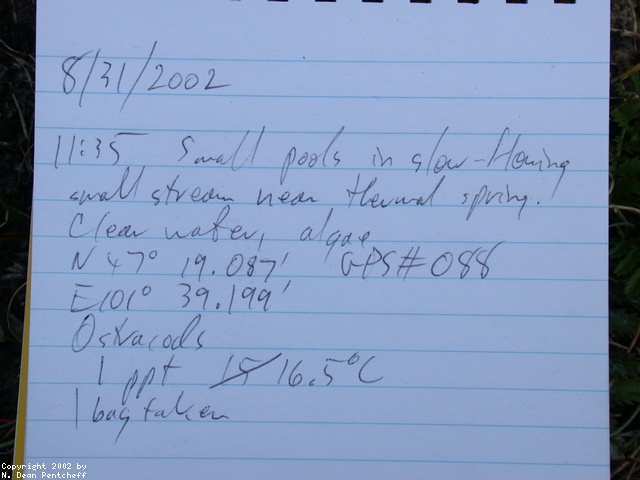 8/31/2002
11:35 Small pools in slow-flowing
small stream near thermal spring.
Clear water, algae
N 47° 19.087' GPS#088
E101° 39.199'
Ostracods
1 ppt 15 16.5°C
1 bag taken
Copyright 2002 by
N. Dean Pentcheff